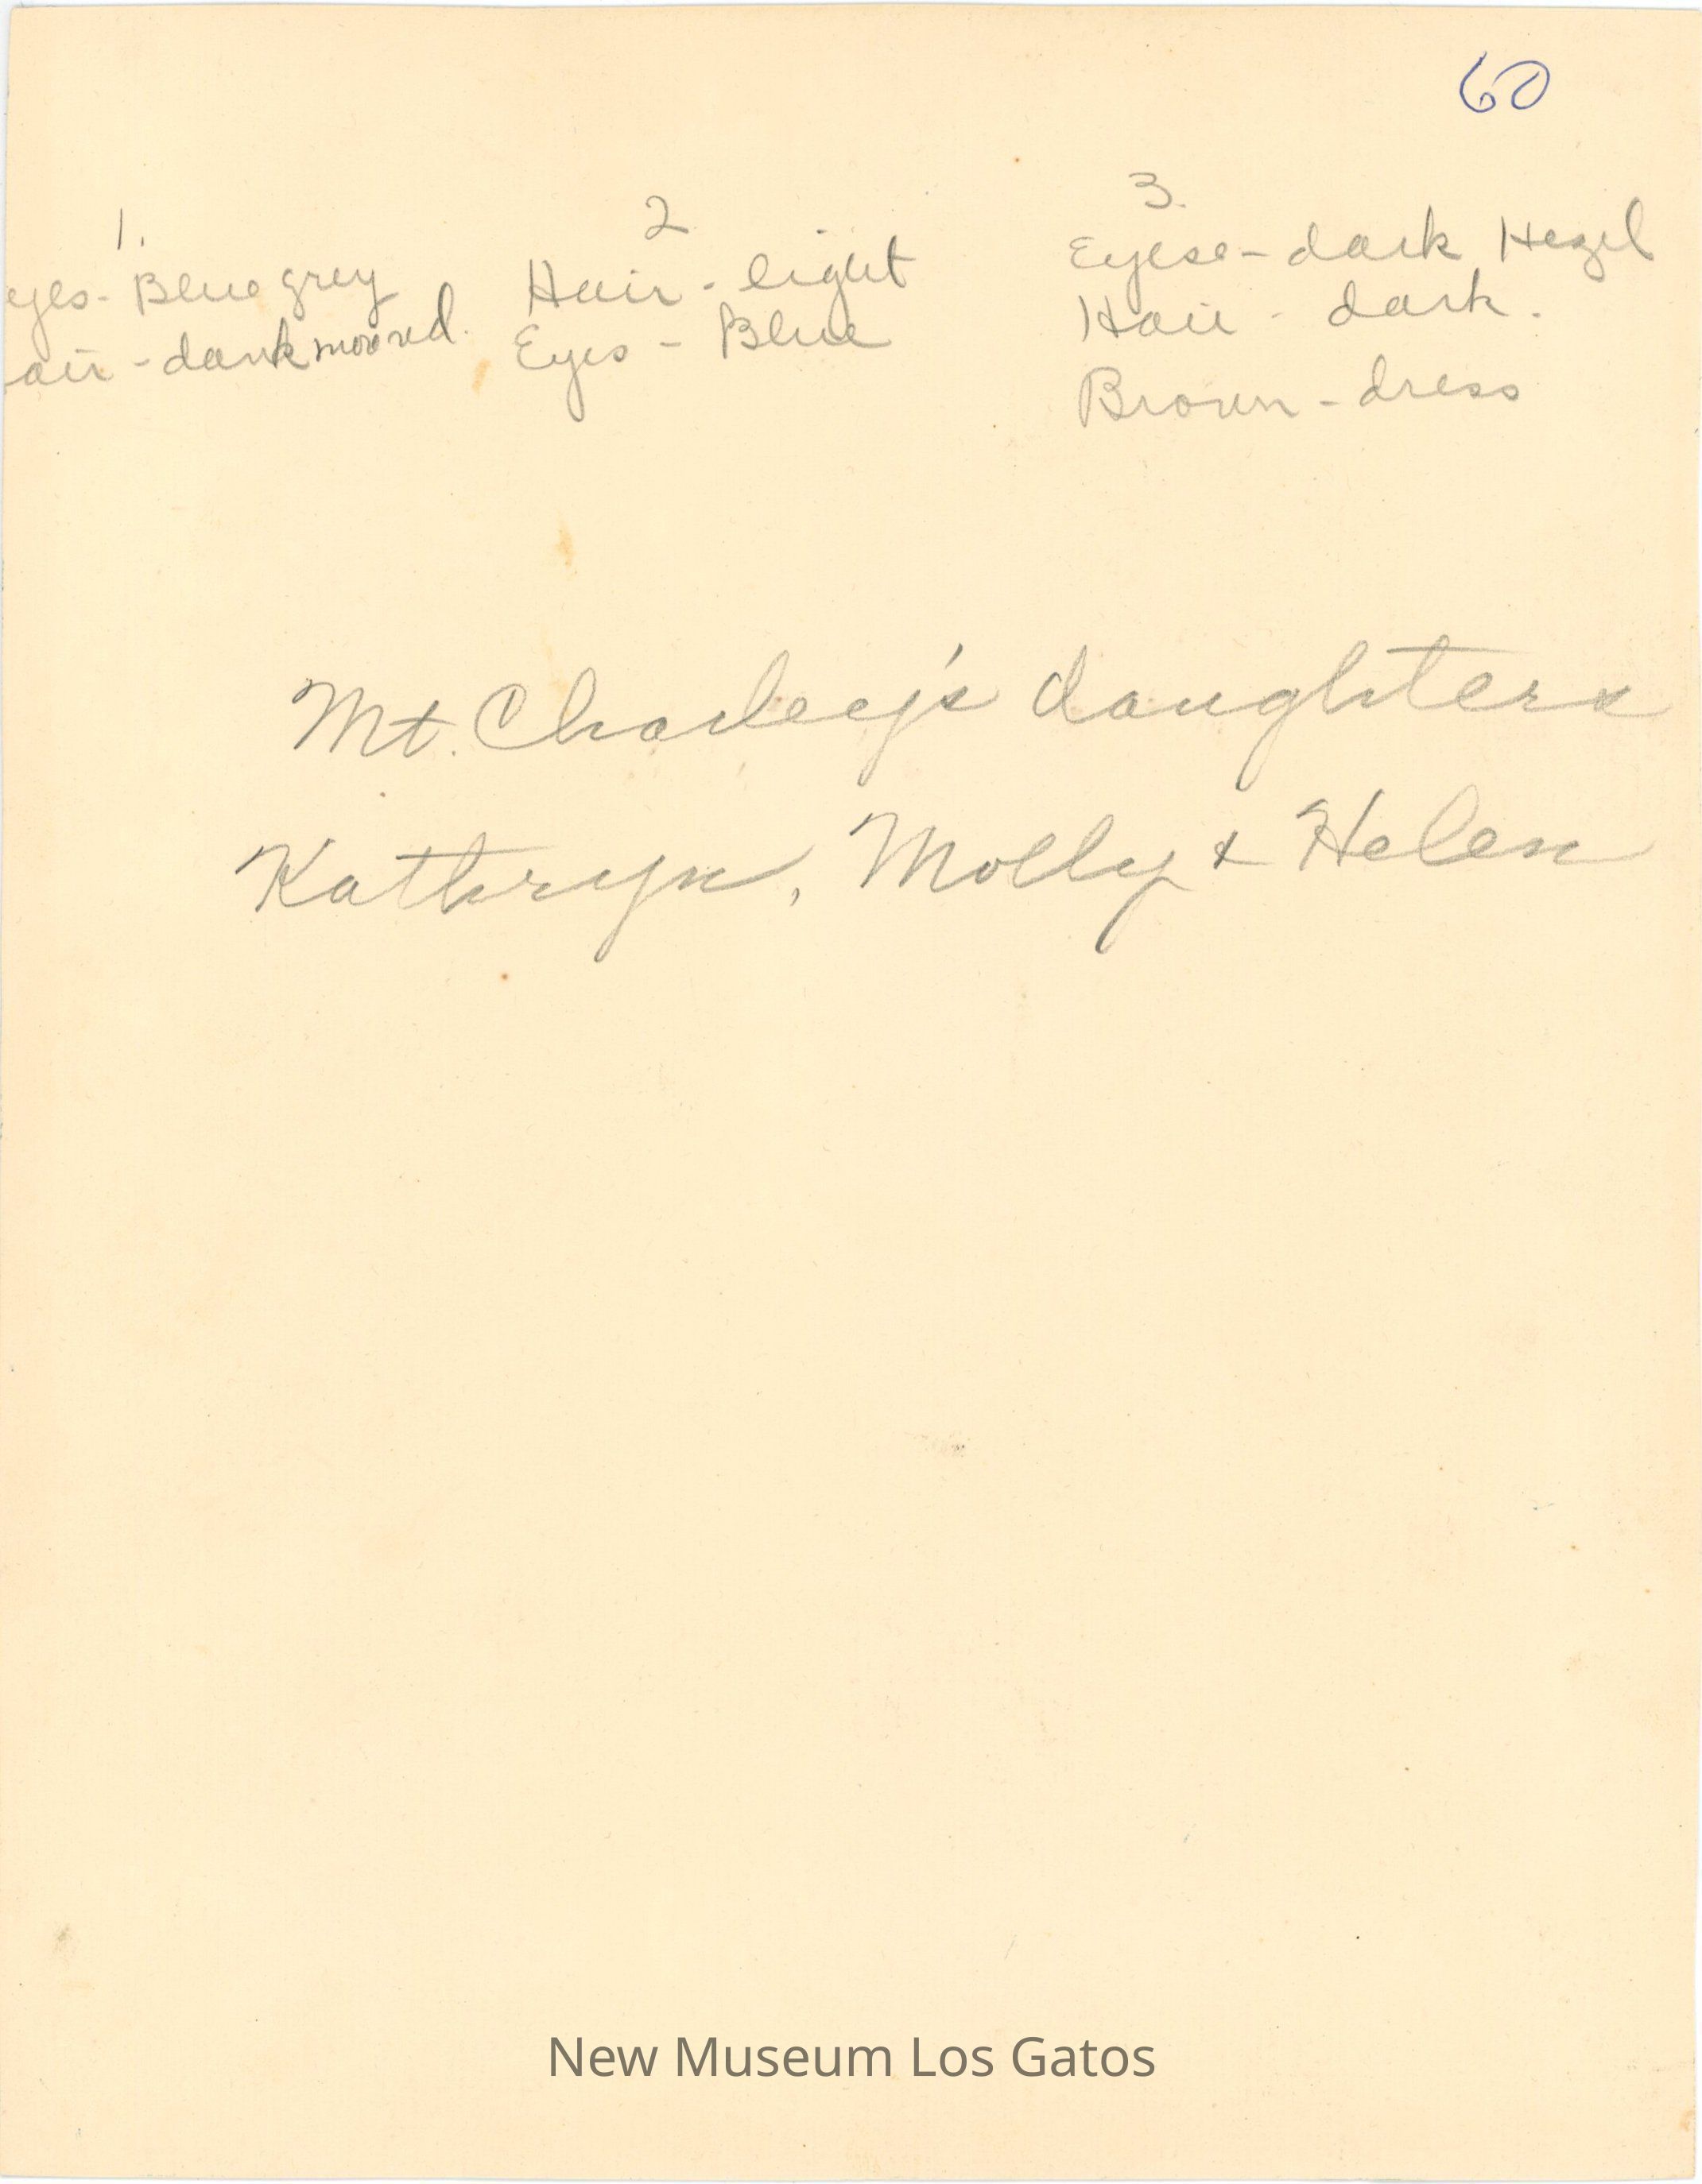 60
1.
eyes - Blue grey
air - dark
2
Hair - light
Eyes - Blue
3.
Eyese - dark Hezel
Hair - dark.
Brown - dress
Mt. Charley's daughters
Kathryn, Molly & Helen
New Museum Los Gatos